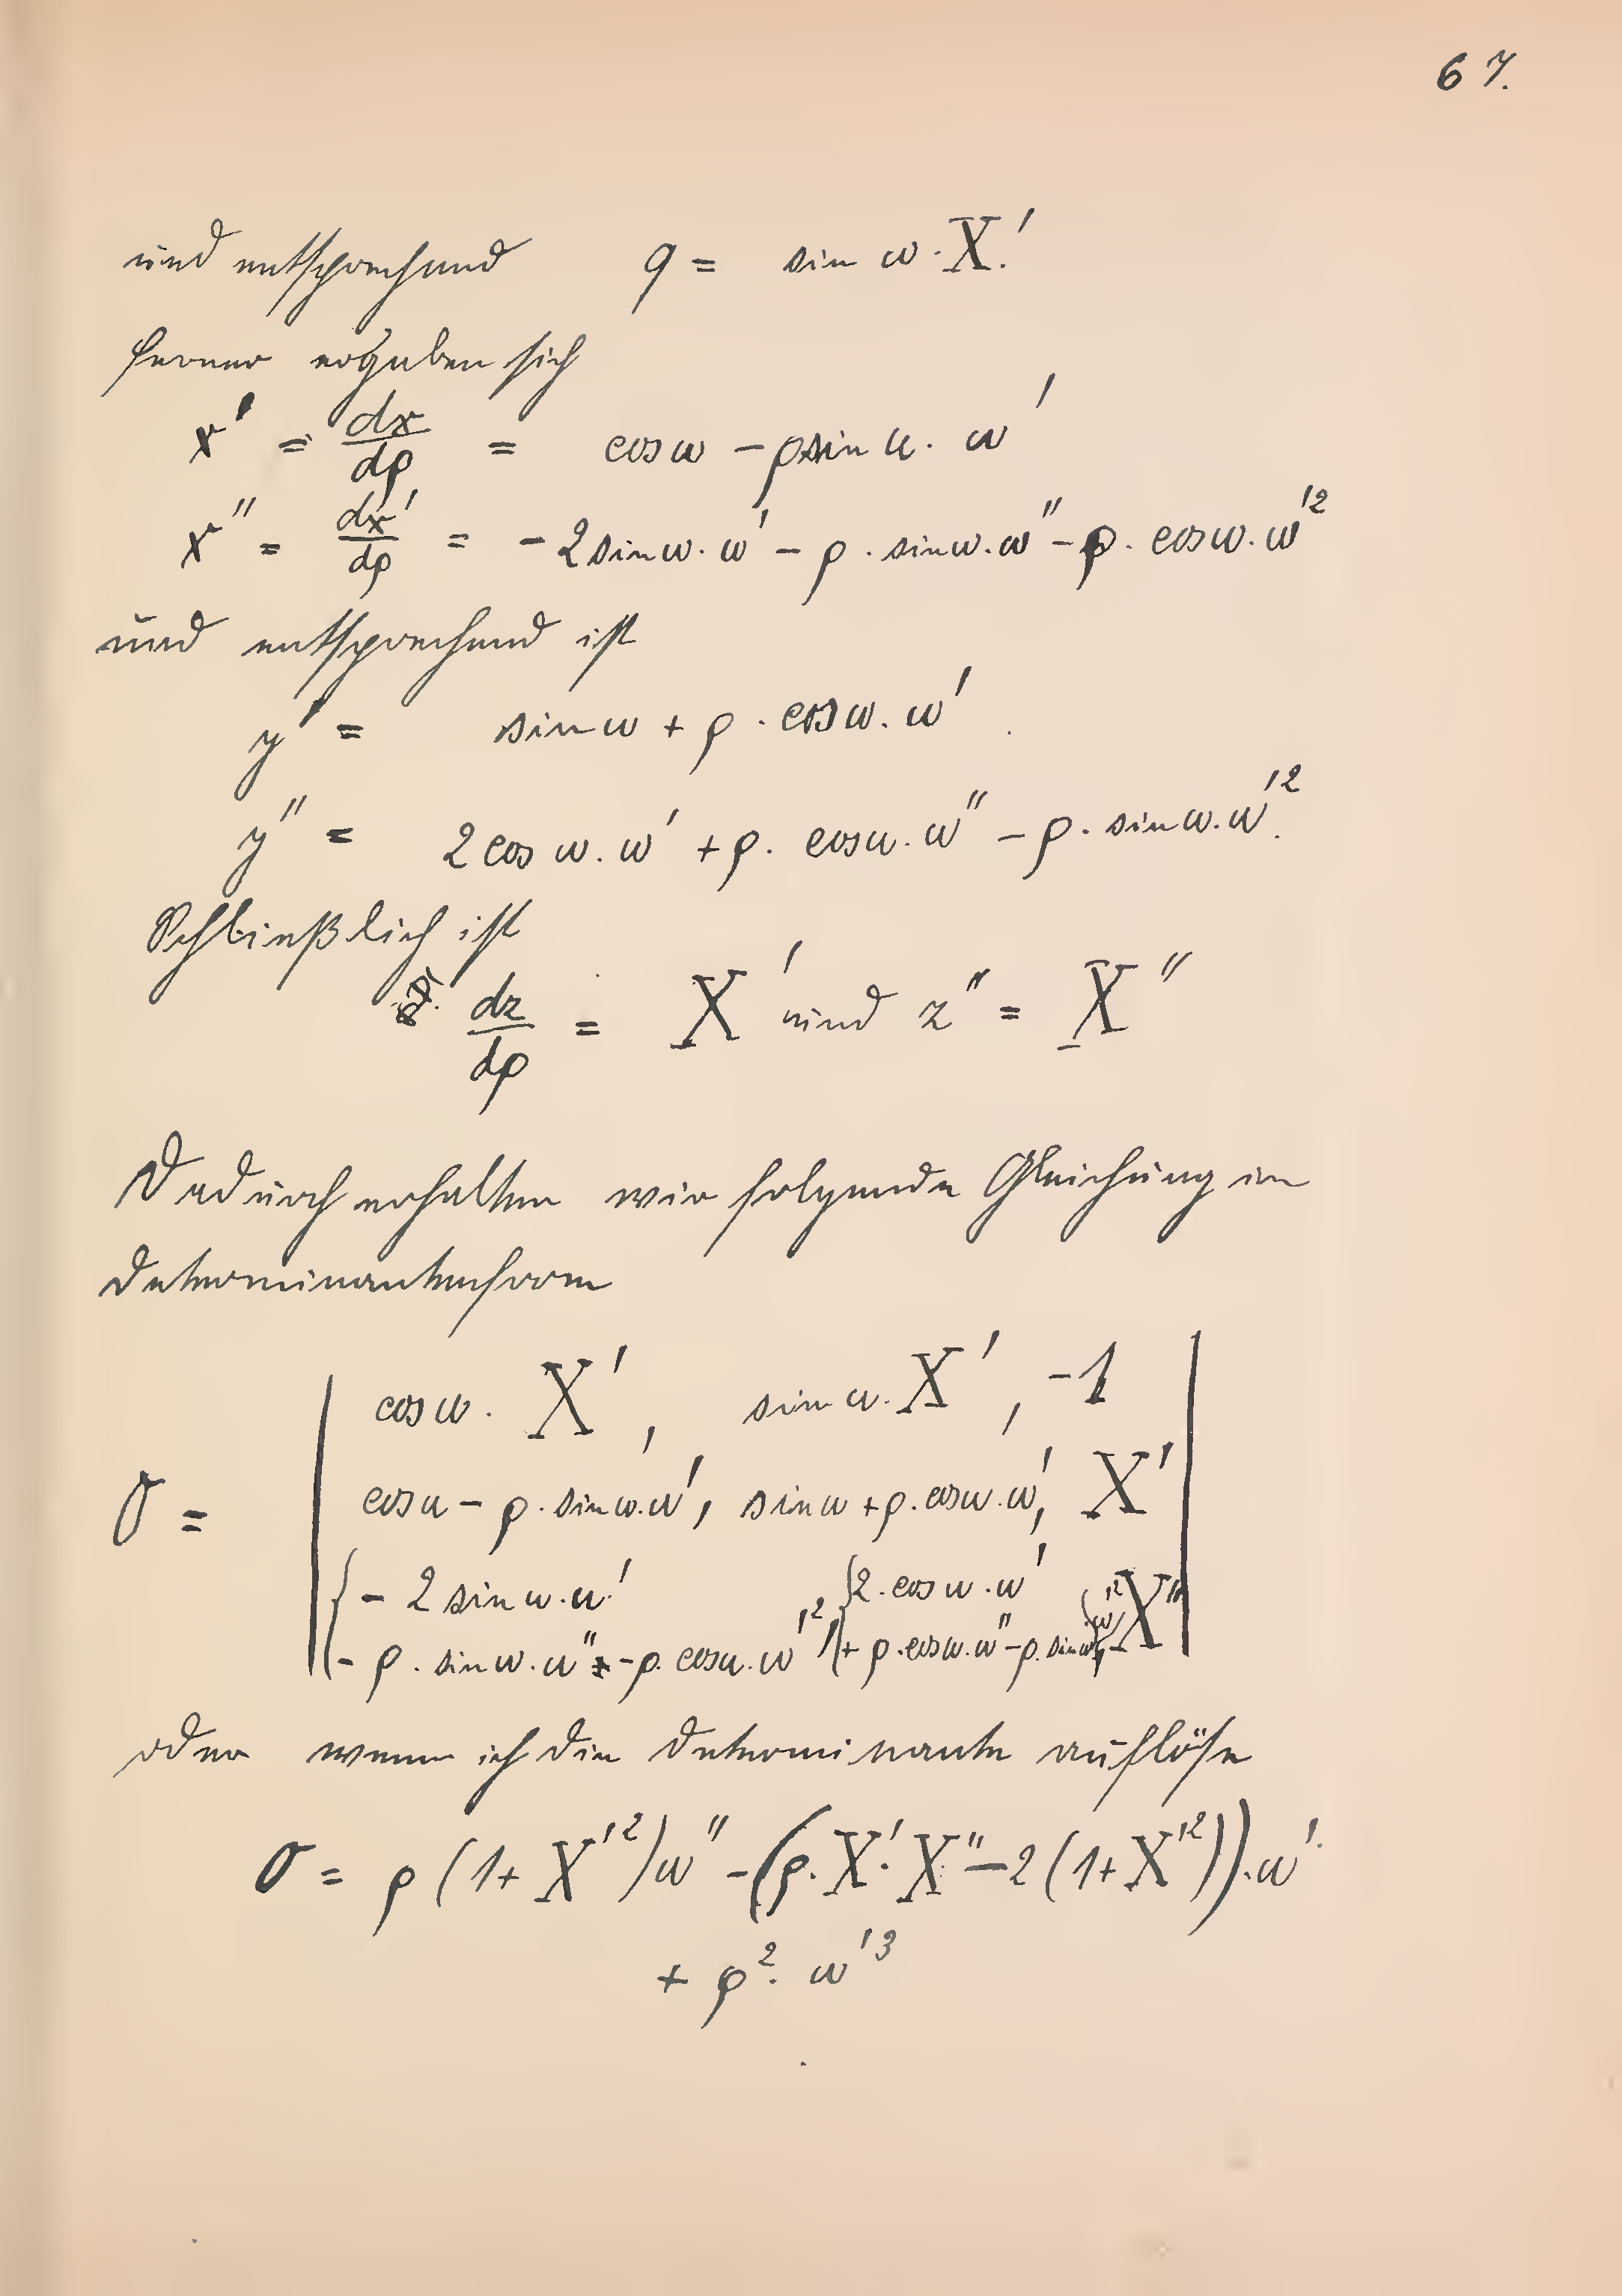 67.
und entsprechend q = sin ω · X'.
ferner ergeben sich
x' = dx/dρ = cos ω − ρ sin ω · ω'
x'' = dx'/dρ = − 2 sin ω · ω' − ρ · sin ω · ω'' − ρ · cos ω · ω'²
und entsprechend ist
y' = sin ω + ρ · cos ω · ω'
y'' = 2 cos ω · ω' + ρ · cos ω · ω'' − ρ · sin ω · ω'².
Schließlich ist
dz/dρ = X' und z'' = X''
Dadurch erhalten wir folgende Gleichung in
Determinantenform
cos ω · X', sin ω · X', −1
0 = cos ω − ρ · sin ω · ω', sin ω + ρ · cos ω · ω', X'
{ − 2 sin ω · ω' { 2 · cos ω · ω' X''
− ρ · sin ω · ω'' − ρ · cos ω · ω'², + ρ · cos ω · ω'' − ρ · sin ω · ω'²,
oder wenn ich die Determinante auflöse
0 = ρ (1 + X'²) ω'' − (ρ · X' · X'' − 2 (1 + X'²)) · ω'
+ ρ² · ω'³